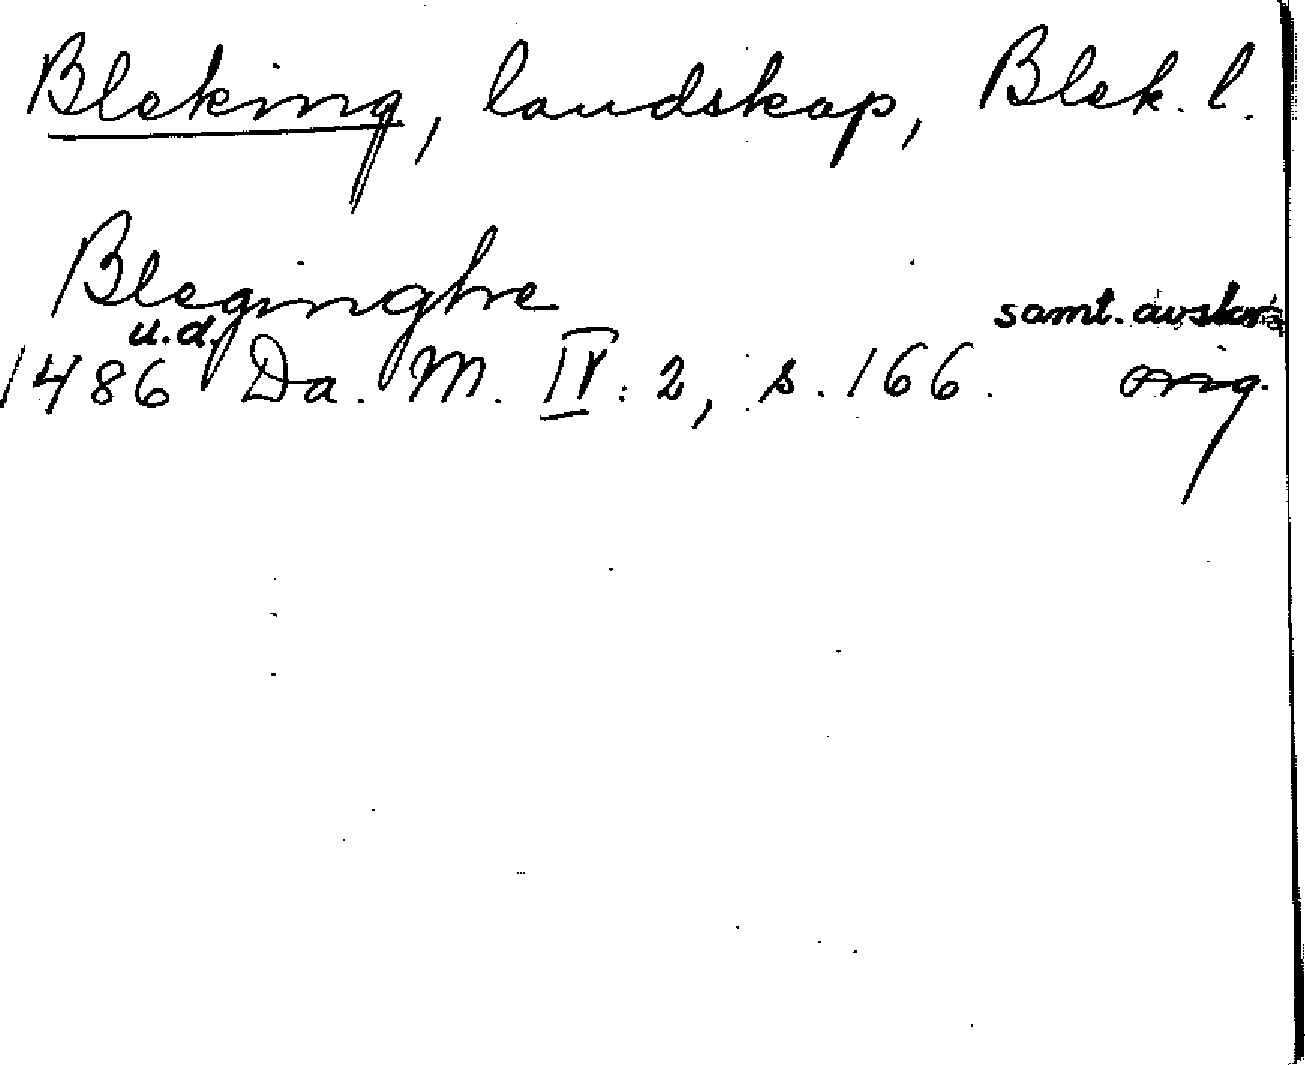 Bleking, landskap, Blek. l.
Bleginghe
samt. avskr.
u.d.
1486 Da. M. IV: 2, s. 166. orig.